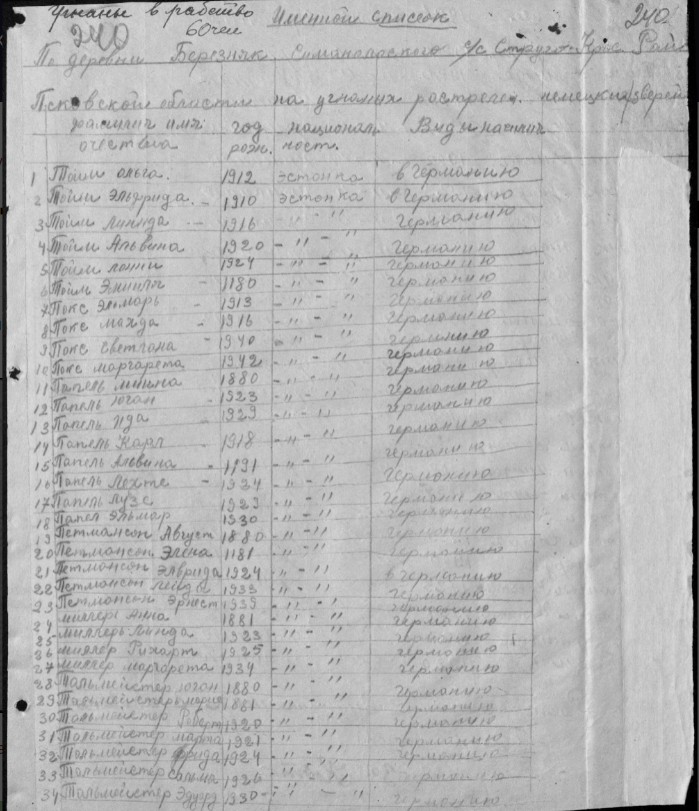 Угнаны в рабство Именной список 240
240 60 чел
По деревни Березняк Симанологского с/с Струго-Крас Райо
Псковской области на угнаных растрелен. немецкими зверей
фамилия имя год националь Виды насилия
очества рожн. ность.
1 Тойм ольга. 1912 эстонка в германию
2 Тойм Эльфрида. - 1910 эстонка в Германию
3 Тойм Линда - 1916 " - " германию
4 Тойм Альвина 1920 - " - " германию
5 Тойм 1924 - " - " германию
6 Тойм - 1180 - " - " германию
7 Покс Эльмарь - 1913 - " - " германию
8 Покс Махда - 1916 - " - " германию
9 Покс Светлана - 1940 " - " германию
10 Покс маргарета 1942 - " - " германию
11 Папель минна 1880 - " - " германию
12 Папель Юган - 1923 - " - " германию
13 Папель Ида - 1929 - " - " германию
14 Папель Карл - 1918 - " - " германию
15 Папель Альвина - 1191 - " - " германию
16 Папель Лехте - 1934 - " - " германию
17 Папель 1923 - " - " германию
18 Папел Эльмар 1930 - " - " германию
19 Петмансон Август 1880 - " - " германию
20 Петмансон Элена 1181 - " - " германию
21 Петмансон Элврида 1924 - " - " в германию
22 Петмансон 1933 - " - " германию
23 Петмансон Эрнест 1939 - " - " германию
24 миллерь Анна 1881 - " - " германию
25 миллерь Линда 1923 - " - " германию
26 миллер Рихарт 1925 - " - " германию
27 миллер маргарета 1934 - " - " германию
28 Тальмейстер юган 1880 - " - " германию
29 Тальмейстерь мария 1861 - " - " германию
30 Тальмейстер Роберт 1920 - " - " германию
31 Тальмейстер марта 1921 - " - " германию
32 Тальмейстер фрида 1924 - " - " германию
33 Тальмейстер салма 1926 - " - " германию
34 Тальмейстер Эдуард 1930 - " - " германию